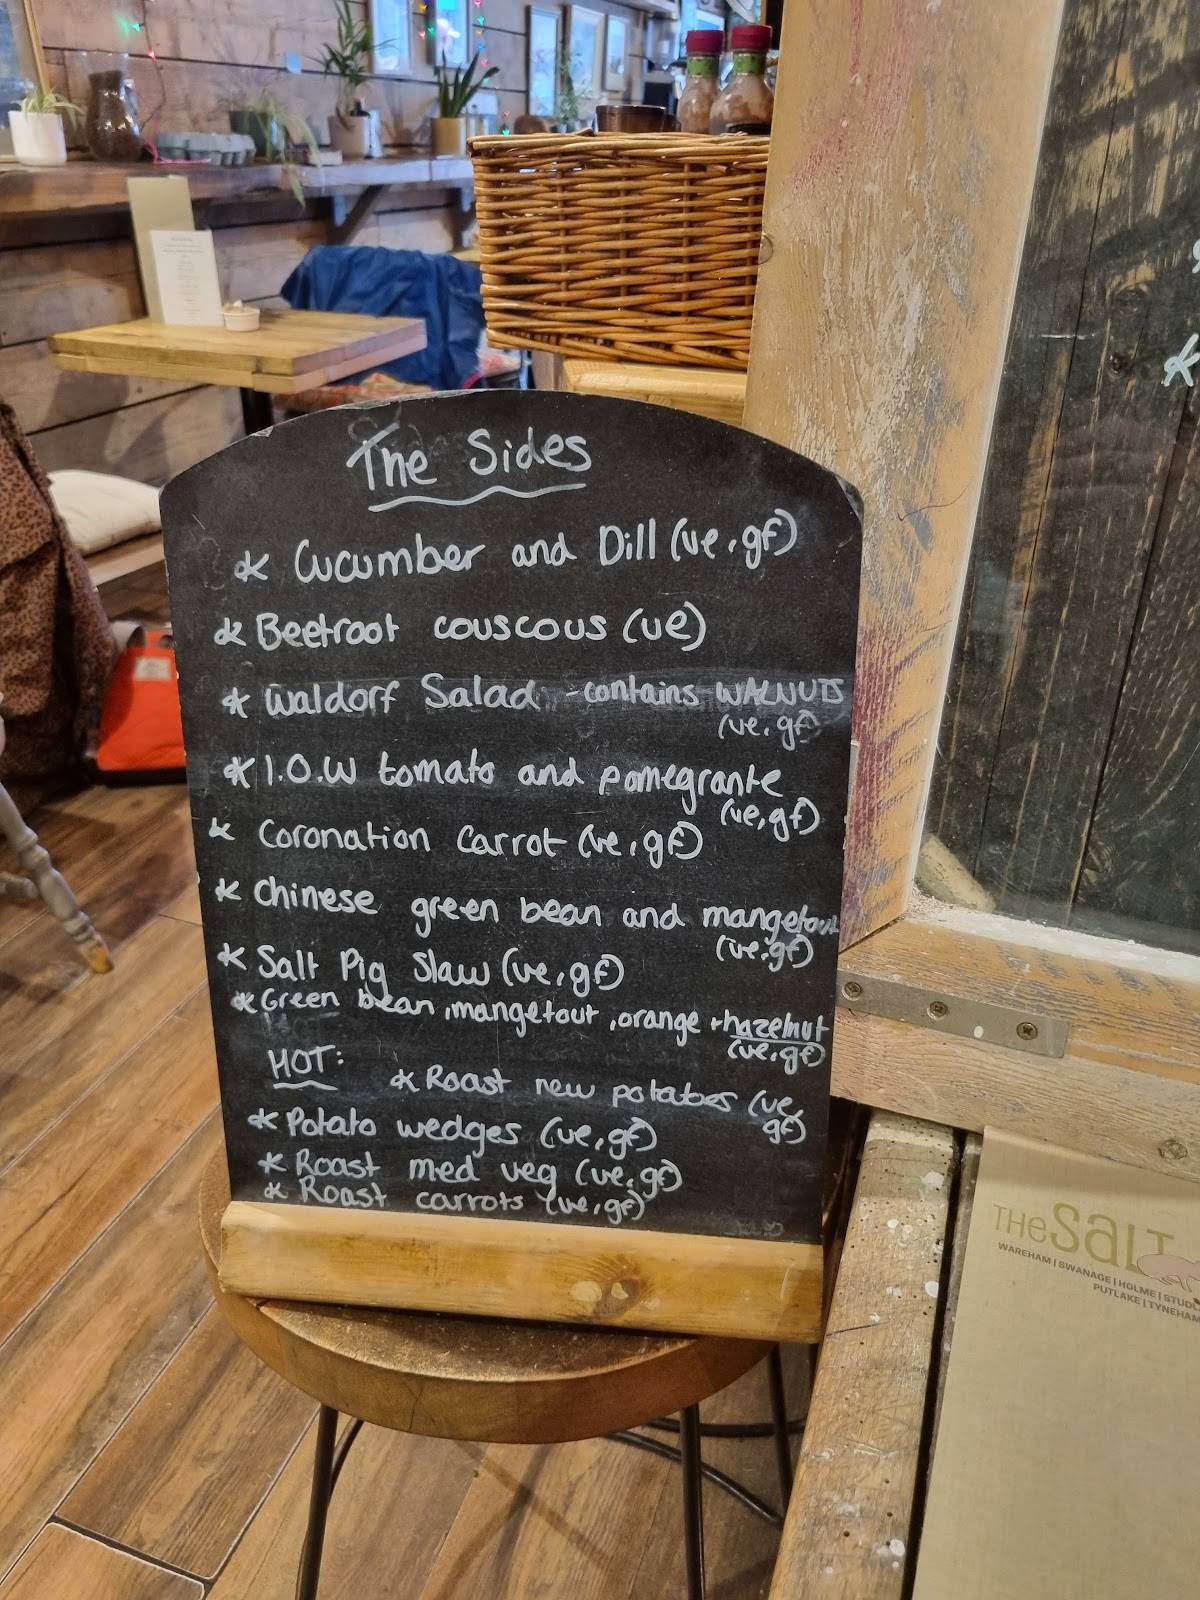 The Sides
* Cucumber and Dill (ve, gf)
* Beetroot couscous (ve)
* Waldorf Salad - contains WALNUTS
(ve, gf)
* I.O.W tomato and pomegrante
(ve, gf)
* Coronation Carrot (ve, gf)
* Chinese green bean and mangetout
(ve, gf)
* Salt Pig Slaw (ve, gf)
* Green bean, mangetout, orange + hazelnut
(ve, gf)
HOT: * Roast new potatoes (ve,
gf)
* Potato wedges (ve, gf)
* Roast med veg (ve, gf)
* Roast carrots (ve, gf)
THE SALT
WAREHAM | SWANAGE | HOLME |
PUTLAKE | TYNEHAM